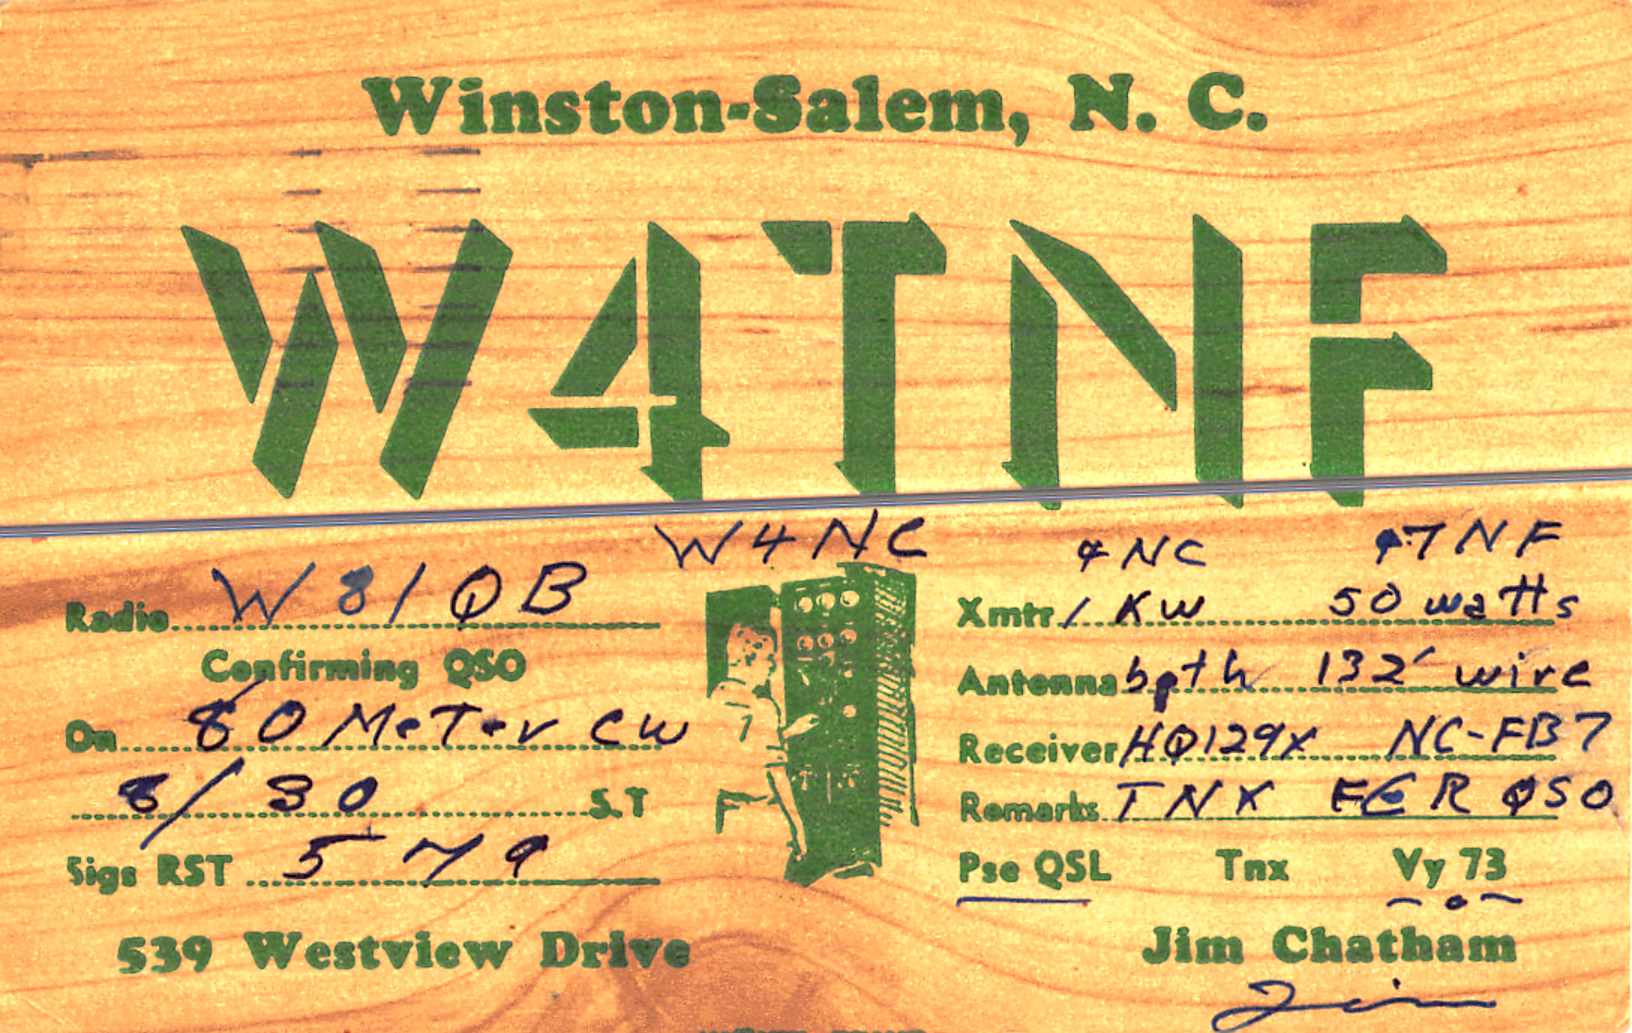 Winston-Salem, N. C.
W4TNF
W4NC
4NC 4TNF
Radio W8IQB
Xmtr 1 KW 50 watts
Confirming QSO
Antenna both 132' wire
On 80 Meter CW
Receiver HQ129X NC-FB7
8/30 S.T
Remarks TNX FER QSO
Sigs RST 579
Pse QSL Tnx Vy 73
539 Westview Drive
Jim Chatham
Jim